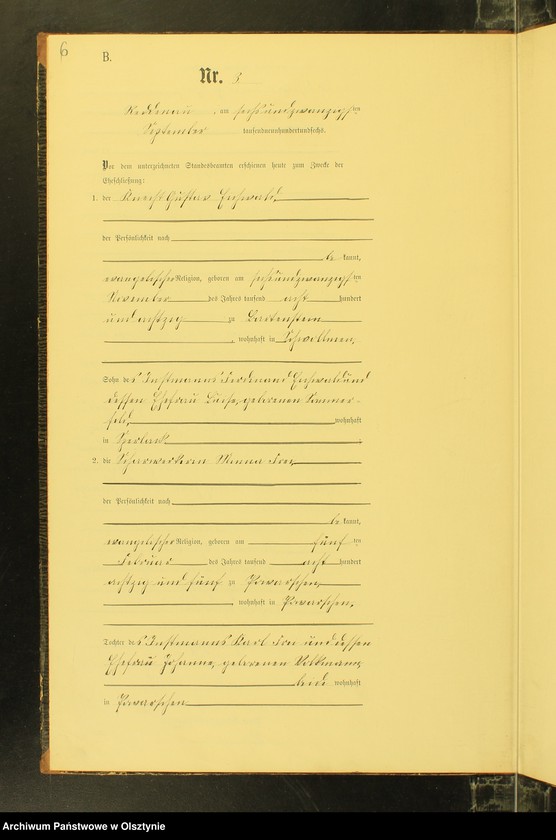 6
B.
Nr. 3
Reddenau, am sechsundzwanzigsten
September tausendneunhundertundsechs.
Vor dem unterzeichneten Standesbeamten erschienen heute zum Zwecke der
Eheschließung:
1. der Knecht Gustav
der Persönlichkeit nach
be kannt,
evangelischer Religion, geboren am sechsundzwanzigsten
November des Jahres tausend acht hundert
und achtzig zu Bartenstein
, wohnhaft in Schwollmen,
Sohn des Instmanns Ferdinand und
dessen Ehefrau geborenen Sommer-
feld, wohnhaft
in Sperlack
2. die Scharwerkerin Minna
der Persönlichkeit nach
be kannt,
evangelischer Religion, geboren am fünften
Februar des Jahres tausend acht hundert
achtzig und fünf zu Powarschen,
, wohnhaft in Powarschen,
Tochter des Instmanns Karl und dessen
Ehefrau Johanne, geborenen Volkmann,
beide wohnhaft
in Powarschen
Archiwum Państwowe w Olsztynie